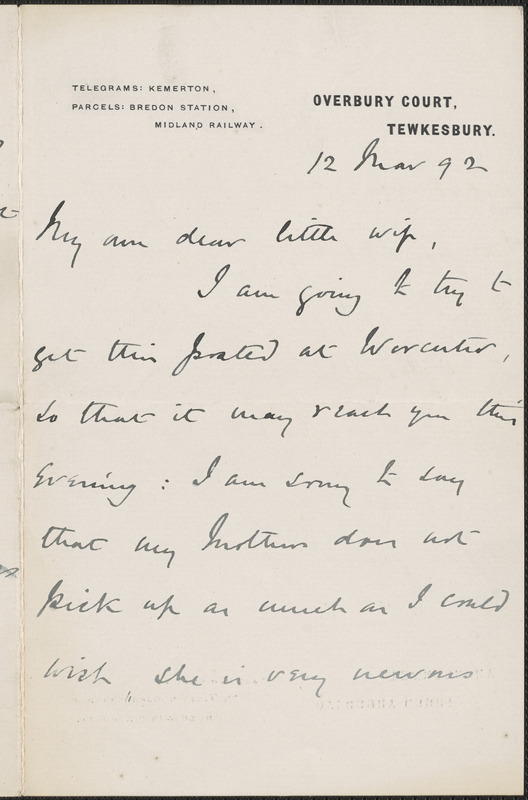 TELEGRAMS: KEMERTON,
PARCELS: BREDON STATION,
MIDLAND RAILWAY.
OVERBURY COURT,
TEWKESBURY.
12 Mar 92
My own dear little wife,
I am going to try to
get this posted at Worcester,
so that it may reach you this
evening: I am sorry to say
that my Mother does not
pick up as much as I could
wish she is very nervous